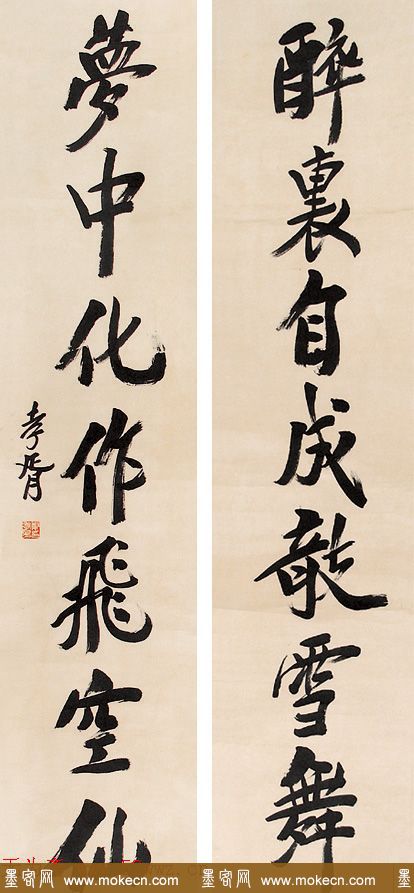 醉裏自成雪舞
夢中化作飛空仙
孝胥
墨客网 www.mokecn.com 墨客网 www.mokecn.com